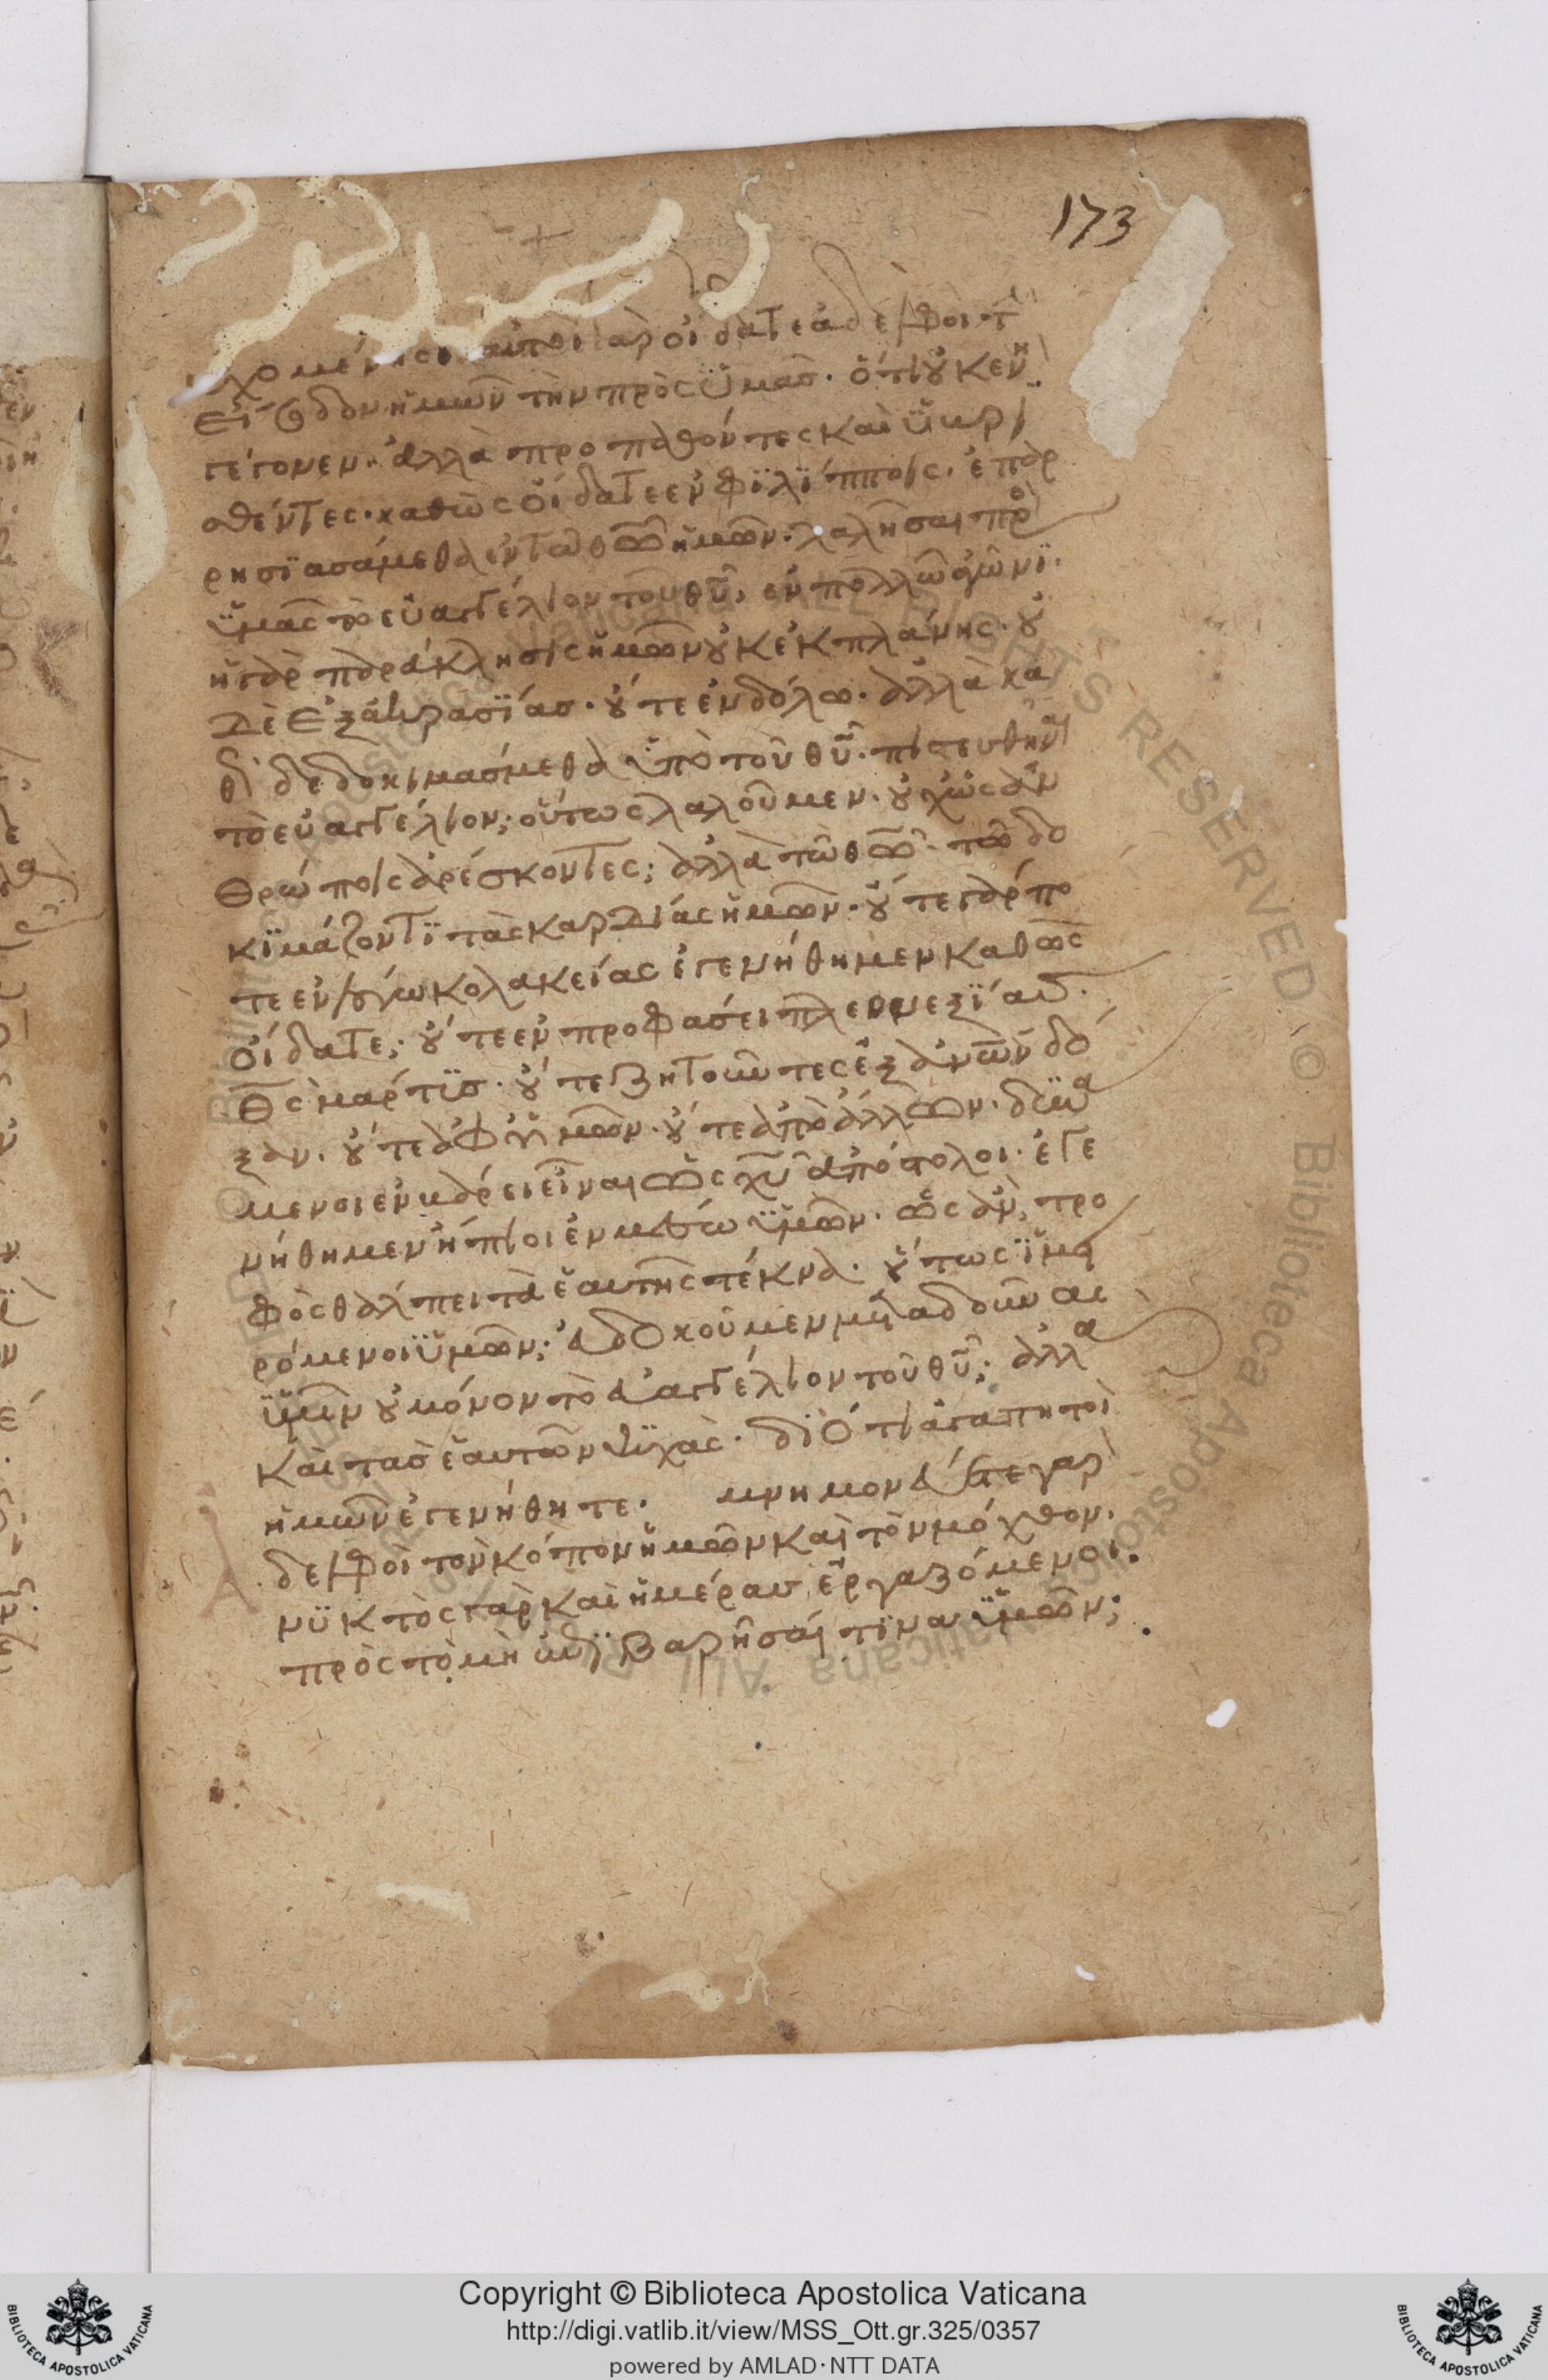 173
χομένης· αὐτοὶ γαρ οἴδατε ἀδελφοι· τ̀
εἴσοδον ἡμῶν τὴν πρὸς ὑμασ· ὅτι οὐ κενὴ
γέγονεν· ἀλλὰ προπαθόντες καὶ ὑβρι
σθέντες· καθὼς οἴδατε ἐν φϊλΐπποις· ἐπαρ
ρησϊασάμεθα ἐν τῶ θῶ ἡμῶν· λαλῆσαι πρὸ
ὑμᾶς τὸ εὐαγγέλιον τοῦ θῦ, ἐν πολλῶ ἀγῶνϊ·
ἡ γὰρ παράκλησις ἡμῶν οὐκ ἐκ πλάνης· οὐ
δὲ ἐξ ἀκαθαρσϊάσ· οὔτε ἐν δόλω· ἀλλὰ κα
θὼ δεδοκιμασμεθα ὑπὸ τοῦ θῦ· πιστευθῆναι
τὸ εὐαγγέλιον; οὕτως λαλοῦμεν· οὐχ ὡς ἀν
θρώποις ἀρέσκοντες; ἀλλὰ τῶ θῶ· τῶ δο
κϊμάζοντϊ τὰς καρδίας ἡμῶν· οὔτε γάρ πο
τε ἐν λόγω κολακείας ἐγενήθημεν καθὼς
οἴδατε; οὔτε ἐν προφάσει πλεονεξϊασ·
θς μάρτϋσ· οὔτε ζητοῦντες ἐξ ἀνῶν δό
ξαν· οὔτε ἀφ ὑμῶν· οὔτε ἀπὸ ἄλλων· δϋνα
μενοι ἐν βάρει εἶναι ὡς χῦ ἀπόστολοι· ἐγε
νήθημεν ἤπιοι ἐν μέσω ὑμῶν· ὡς ἂν, τρο
φὸς θάλπει τὰ ἑαυτῆς τέκνα· οὕτως ϊμει
ρόμενοι ὑμῶν; εὐδοκοῦμεν μεταδοῦναι
ὑμῖν οὐ μόνον τὸ εὐαγγέλιον τοῦ θῦ; ἀλλὰ
καὶ τασ ἑαυτῶν ψϋχὰς· δϊότι ἀγαπητοὶ
ἡμῶν ἐγενήθητε· μνημονεύετε γαρ
ἀδελφοὶ τὸν κόπον ἡμῶν καὶ τὸν μόχθον·
νϋκτὸς γὰρ καὶ ἡμέρασ ἐργαζόμενοι·
πρὸς τὸ μὴ ἐπϊβαρῆσαί τϊνα ὑμῶν;
Copyright © Biblioteca Apostolica Vaticana
http://digi.vatlib.it/view/MSS_Ott.gr.325/0357
powered by AMLAD·NTT DATA